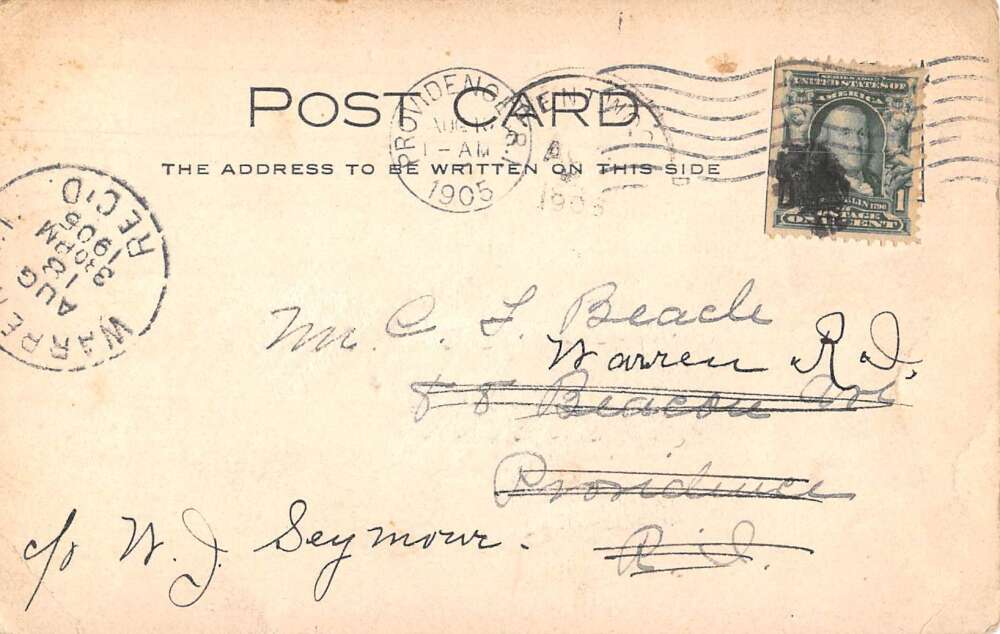 POST CARD
THE ADDRESS TO BE WRITTEN ON THIS SIDE
PROVIDENCE
AUG 18
1 - AM
1905
1905
SERIES 1902
UNITED STATES OF
AMERICA
FRANKLIN 1790
POSTAGE
ONE CENT
1
WARREN
AUG
18
330PM
1905
REC'D
Mr. C. F. Beach
Warren R.I.
88 Beacon Ave
Providence
R.I.
c/o W. J. Seymour.